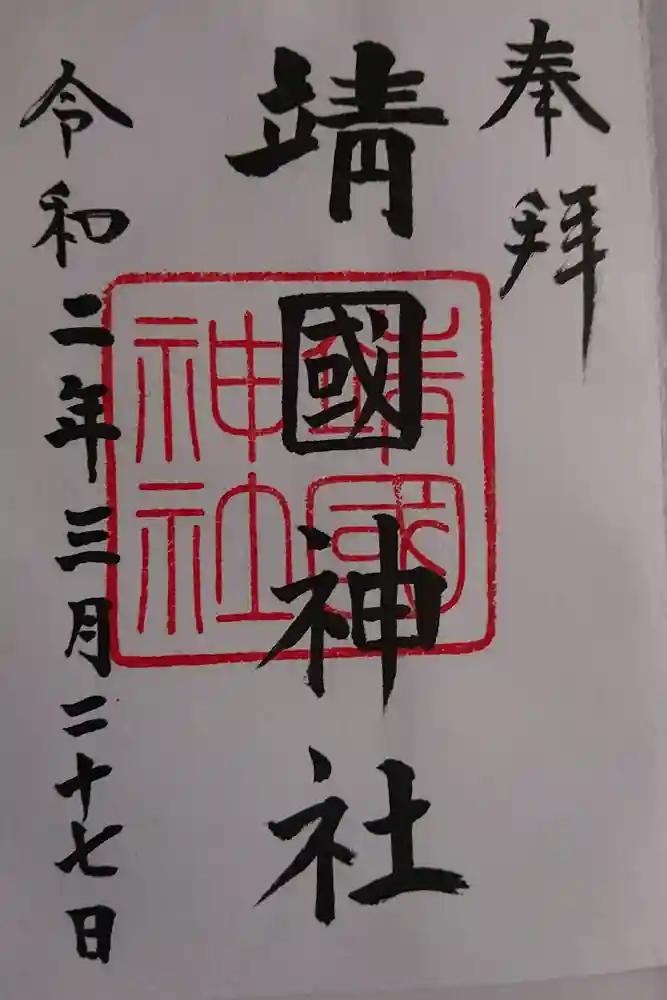 奉拝
靖國神社
靖國神社
令和二年三月二十七日